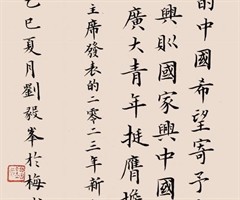 的中國希望寄予
興則國家興中國
廣大青年挺膺擔
主席發表的二零二三年新
乙巳夏月劉毅峯於梅